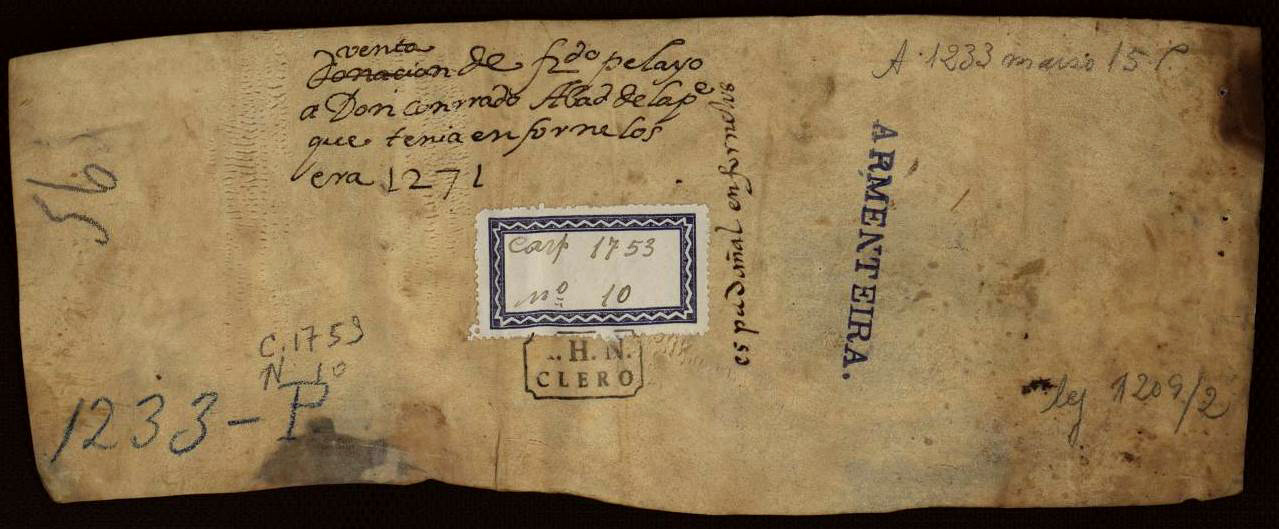 venta
donacion de frdo pelayo
a Don conrrado Abad de la pe
que tenia en fornelos
era 1271
A. 1233 marzo 15.
ARMENTEIRA.
en fornelos
56
Carp 1753
nº 10
A. H. N.
CLERO
C. 1753
N. 10
1233-P
leg 1209/2